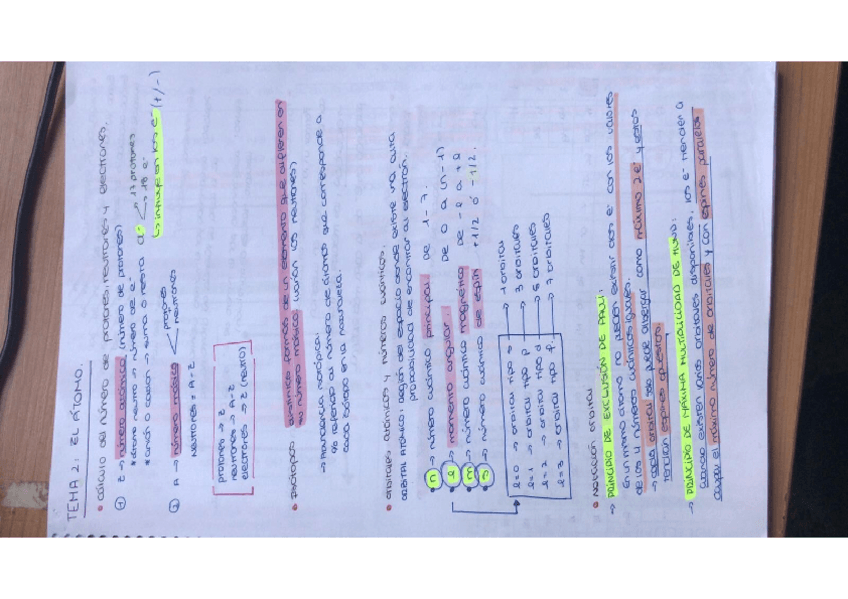 TEMA 2: EL ÁTOMO.
• cálculo del número de protones, neutrones y electrones.
① Z → número atómico (número de protones)
* átomo neutro → número de e-
* anión o catión → suma o resta
Cl- 17 protones
18 e-
→ influye en los e- (+/-)
② A → número másico protones
neutrones
neutrones = A - Z
protones → Z
neutrones → A - Z
electrones → Z (neutro)
• isótopos: distintas formas de un elemento que difieren en
su número másico (varían los neutrones)
→ Abundancia isotópica:
% referido al número de átomos que corresponde a
cada isótopo en la naturaleza.
• orbitales atómicos y números cuánticos.
ORBITAL ATÓMICO: región del espacio donde existe una alta
probabilidad de encontrar al electrón.
• n → número cuántico principal de 1 - 7.
• l → momento angular. de 0 a (n-1)
• m → número cuántico magnético de -l a +l
• s → número cuántico de espín +1/2 ó -1/2.
l=0 → orbital tipo s → 1 orbital
l=1 → orbital tipo p → 3 orbitales
l=2 → orbital tipo d → 5 orbitales
l=3 → orbital tipo f → 7 orbitales
• notación orbital
→ PRINCIPIO DE EXCLUSIÓN DE PAULI:
En un mismo átomo no pueden existir dos e- con los valores
de los 4 números cuánticos iguales.
→ cada orbital solo puede albergar como máximo 2 e- y estos
tendrán espines opuestos.
→ PRINCIPIO DE MÁXIMA MULTIPLICIDAD DE HUND:
cuando existen varios orbitales disponibles, los e- tienden a
ocupar el máximo número de orbitales y con espines paralelos